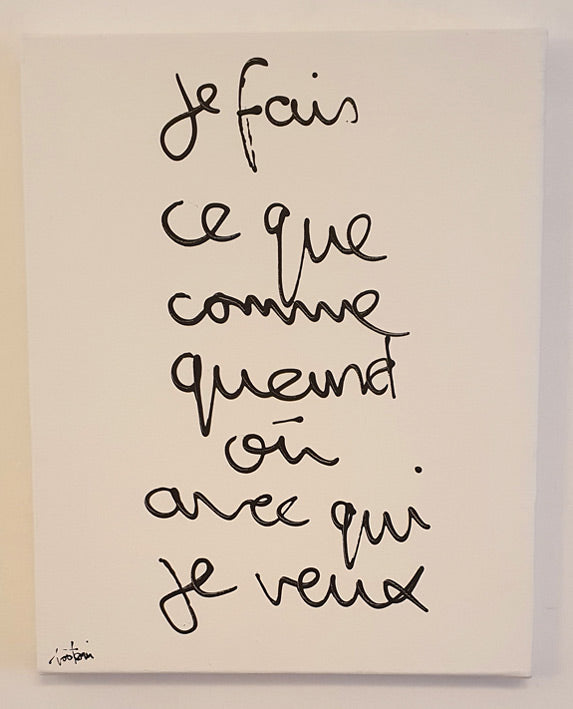 je fais
ce que
comme
quand
où
avec qui
je veux